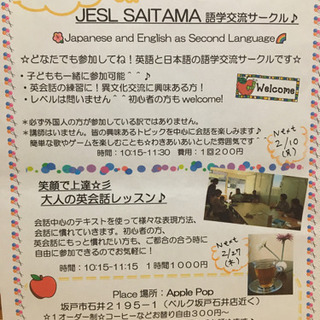 JESL SAITAMA 語学交流サークル♪
Japanese and English as Second Language
☆どなたでも参加してね！英語と日本語の語学交流サークルです☆
・子どもも一緒に参加可能＾＾♪
・英会話の練習に！異文化交流に興味ある方！
・レベルは問いません＾＾初心者の方も welcome!
Welcome
*必ず外国人の方が参加している訳ではありません。
*講師はいません。皆の興味あるトピックを中心に会話を楽しみます♪
簡単な歌やゲームを楽しむことも☆わきあいあいとした雰囲気です＾＾
時間：10:15-11:30 費用：1回200円
Next
2/10
笑顔で上達☆彡
大人の英会話レッスン♪
会話中心のテキストを使って様々な表現方法、
会話に慣れていきます。初心者の方、
英会話にもっと慣れたい方も、ご都合の合う時に
自由に参加できるのでお気軽に！
時間：10:15-11:15 1時間1000円
Next
2/27
(木)
Place 場所：Apple Pop
坂戸市石井2195-1（ベルク坂戸石井店近く）
☆1オーダー制☆コーヒーなどお替り自由300円～